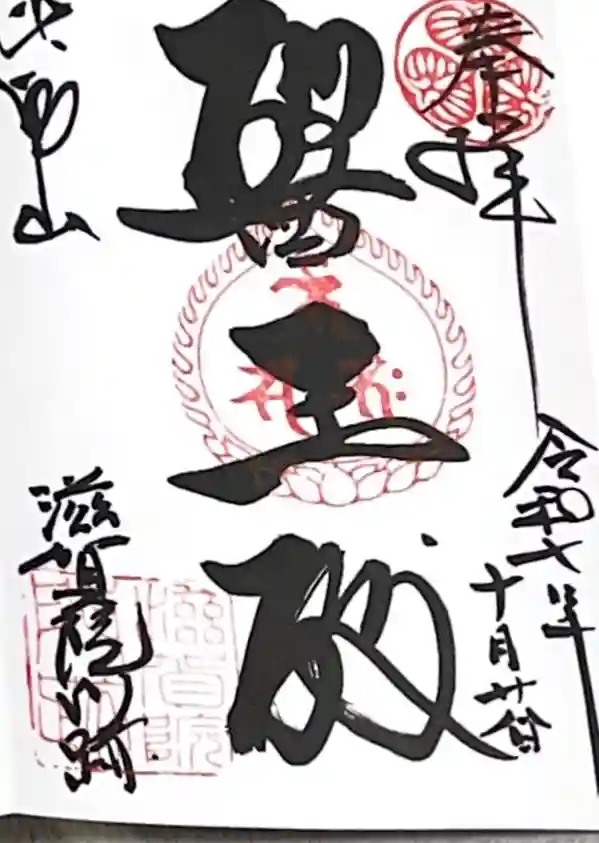 奉拝
令和七年
十月廿日
醫王殿
叡山
滋賀院門跡